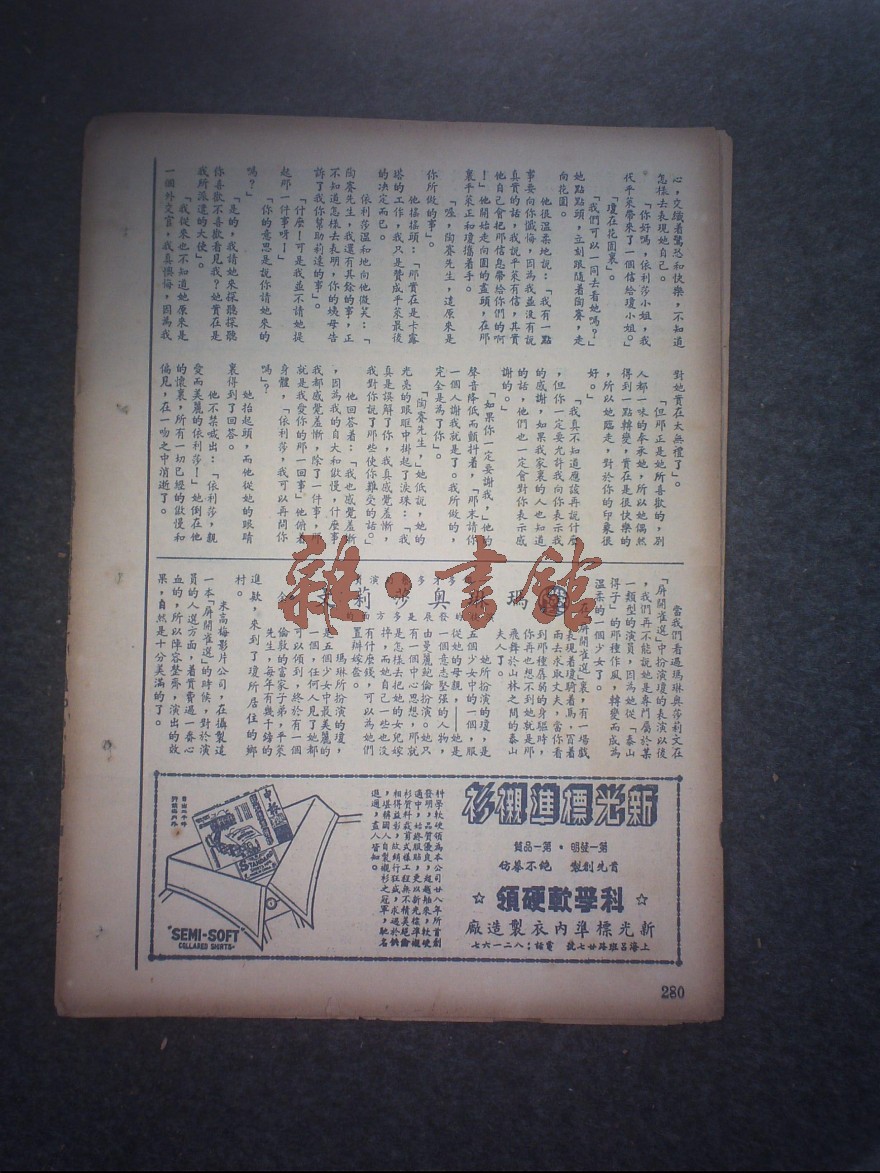 心，交織着驚恐和快樂，不知道
怎樣去表現她自己。
「你好嗎，依利莎小姐，我
代平萊帶來了一個信給瓊小姐。」
「瓊在花園裏。」
「我們可以一同去看她嗎？」
她點點頭，立刻跟隨着陶賽，走
向花園。
他很溫柔地說：「我有一點
事要向你懺悔，因為我並沒有說
真實的話，我說平萊有信，其實
他自己會把那信息帶給你們的啊
！」他開始走向園的盡頭，在那
裏平萊正和瓊攜着手。
「喔，陶賽先生，這原來是
你所做的事」。
他搖搖頭：「那實在是卡露
塔的工作，我只是贊成平萊最後
的決定而已。
依利莎溫和地向他微笑：「
陶賽先生，我還有其餘的事，正
不知道怎樣去表明，你的姨母告
訴了我你幫助莉達的事」。
「什麼！可是我並不請她提
起那一件事呀！」
「你的意思是說你請她來的
嗎？」
「是的，我請她來探聽探聽
你喜歡不喜歡看見我？她實在是
我所派遣的大使」。
「我從來也不知道她原來是
一個外交官，我真懊悔，因為我
對她實在太無禮了」。
「但那正是她所喜歡的，別
人都一味的奉承她，所以她偶然
得到一點轉變，實在是很快樂的
，所以她臨走，對於你的印象很
好。」
「我真不知道應該再說什麼
，但你一定要允許我向你表示我
的感謝，如果我家裏的人也知道
的話，他們也一定會對你表示感
謝的。」
「如果你一定要謝我，」他的
聲音降低而顫抖着，「那末請你
一個人謝我就是了。我所做的，
完全是為了你」。
「陶賽先生，」她低說，她的
光亮的眼眶中掛起了淚珠：「我
真是誤解了你，我真感覺羞慚，
我對你說了那些使你難受的話。」
他回答着：「我也感覺羞慚
，因為我的自大和傲慢，什麼事
我都感覺羞慚，除了一件事，那
就是我愛你的那一回事」他俯着
身體，「依利莎，我可以再問你
嗎？」
她抬起頭，而他從她的眼睛
裏得到了回答。
他不禁喊出：「依利莎，親
愛而美麗的依利莎！」她倒在他
的懷裏，所有一切已經的傲慢和
偏見，在一吻之中消逝了。
瑪琳奧莎莉文
當我們看過瑪琳奧莎莉文在
「屏開雀選」中扮演瓊的表演以後
，我們再不能說她是專門屬於某
一類型的演員，因為她從「泰山
得子」的那種作風，轉變而成為
溫柔的一個少女了。
在「屏開雀選」裏，有一場戲
表現着瓊騎着馬，冒着
雨去求取丈夫，當你看
到那種孱弱的身軀時，
你再也想不到她就是那
飛舞於山林之間的泰山
夫人了。
她所扮演的瓊，是
五個少女中的一個，服
從她的母親，——她是
一個意志堅強的人物，
由曼麗鮑倫扮演。她只
是有一個中心思想，那就
是怎樣去把她的女兒嫁
掉，而她自己一些也沒
有什麼錢，可以為她們
置辦嫁奩。
瑪琳所扮演的瓊，
是五個少女中最美麗的
一個，任何人見了她都
可以傾到，終於有一個
倫敦的富家子弟，平萊
先生，每年有幾千鎊的
進欵，來到了瓊所居住的鄉
村。
米高梅影片公司，在攝製這
一本「屏開雀選」的時候，對於演
員的人選方面，着實費過一番心
血的，所以陣容整齊，演出的效
果，自然是十分美滿的了。
雜·書館
新光標準襯衫
第一發明·第一品質
首先創製 絕不摹仿
☆科學軟硬領☆
新光標準內衣製造廠
上海呂班路廿七號 電話：八二一六七
科學軟硬領為本公司廿八年所首創
發明，品質優良，超越舶來，軟硬
適中，始終服貼，更以新光標準襯
衫質料裁剪式樣工程無不精美絕倫
相得益彰，故銷行狂盛，求過於供
，堪稱國人自製襯衫之冠軍，馳名
遐邇，盡人皆知。
申報
STANDARD
"SEMI-SOFT"
COLLARED SHIRTS
280